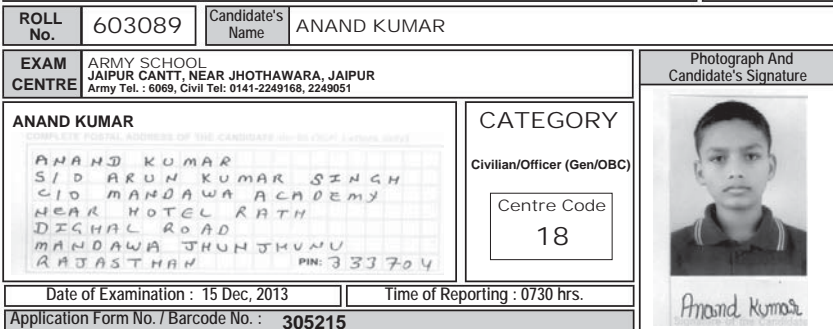 ROLL No. 603089 Candidate's Name ANAND KUMAR
EXAM CENTRE
ARMY SCHOOL
JAIPUR CANTT, NEAR JHOTHAWARA, JAIPUR
Army Tel. : 6069, Civil Tel: 0141-2249168, 2249051
Photograph And
Candidate's Signature
ANAND KUMAR
COMPLETE POSTAL ADDRESS OF THE CANDIDATE
ANAND KUMAR
S/O ARUN KUMAR SINGH
C/O MANDAWA ACADEMY
NEAR HOTEL RATH
DIGHAL ROAD
MANDAWA JHUNJHUNU
RAJASTHAN PIN: 333704
CATEGORY
Civilian/Officer (Gen/OBC)
Centre Code
18
Anand Kumar
Signature of the Candidate
Date of Examination : 15 Dec, 2013 Time of Reporting : 0730 hrs.
Application Form No. / Barcode No. : 305215